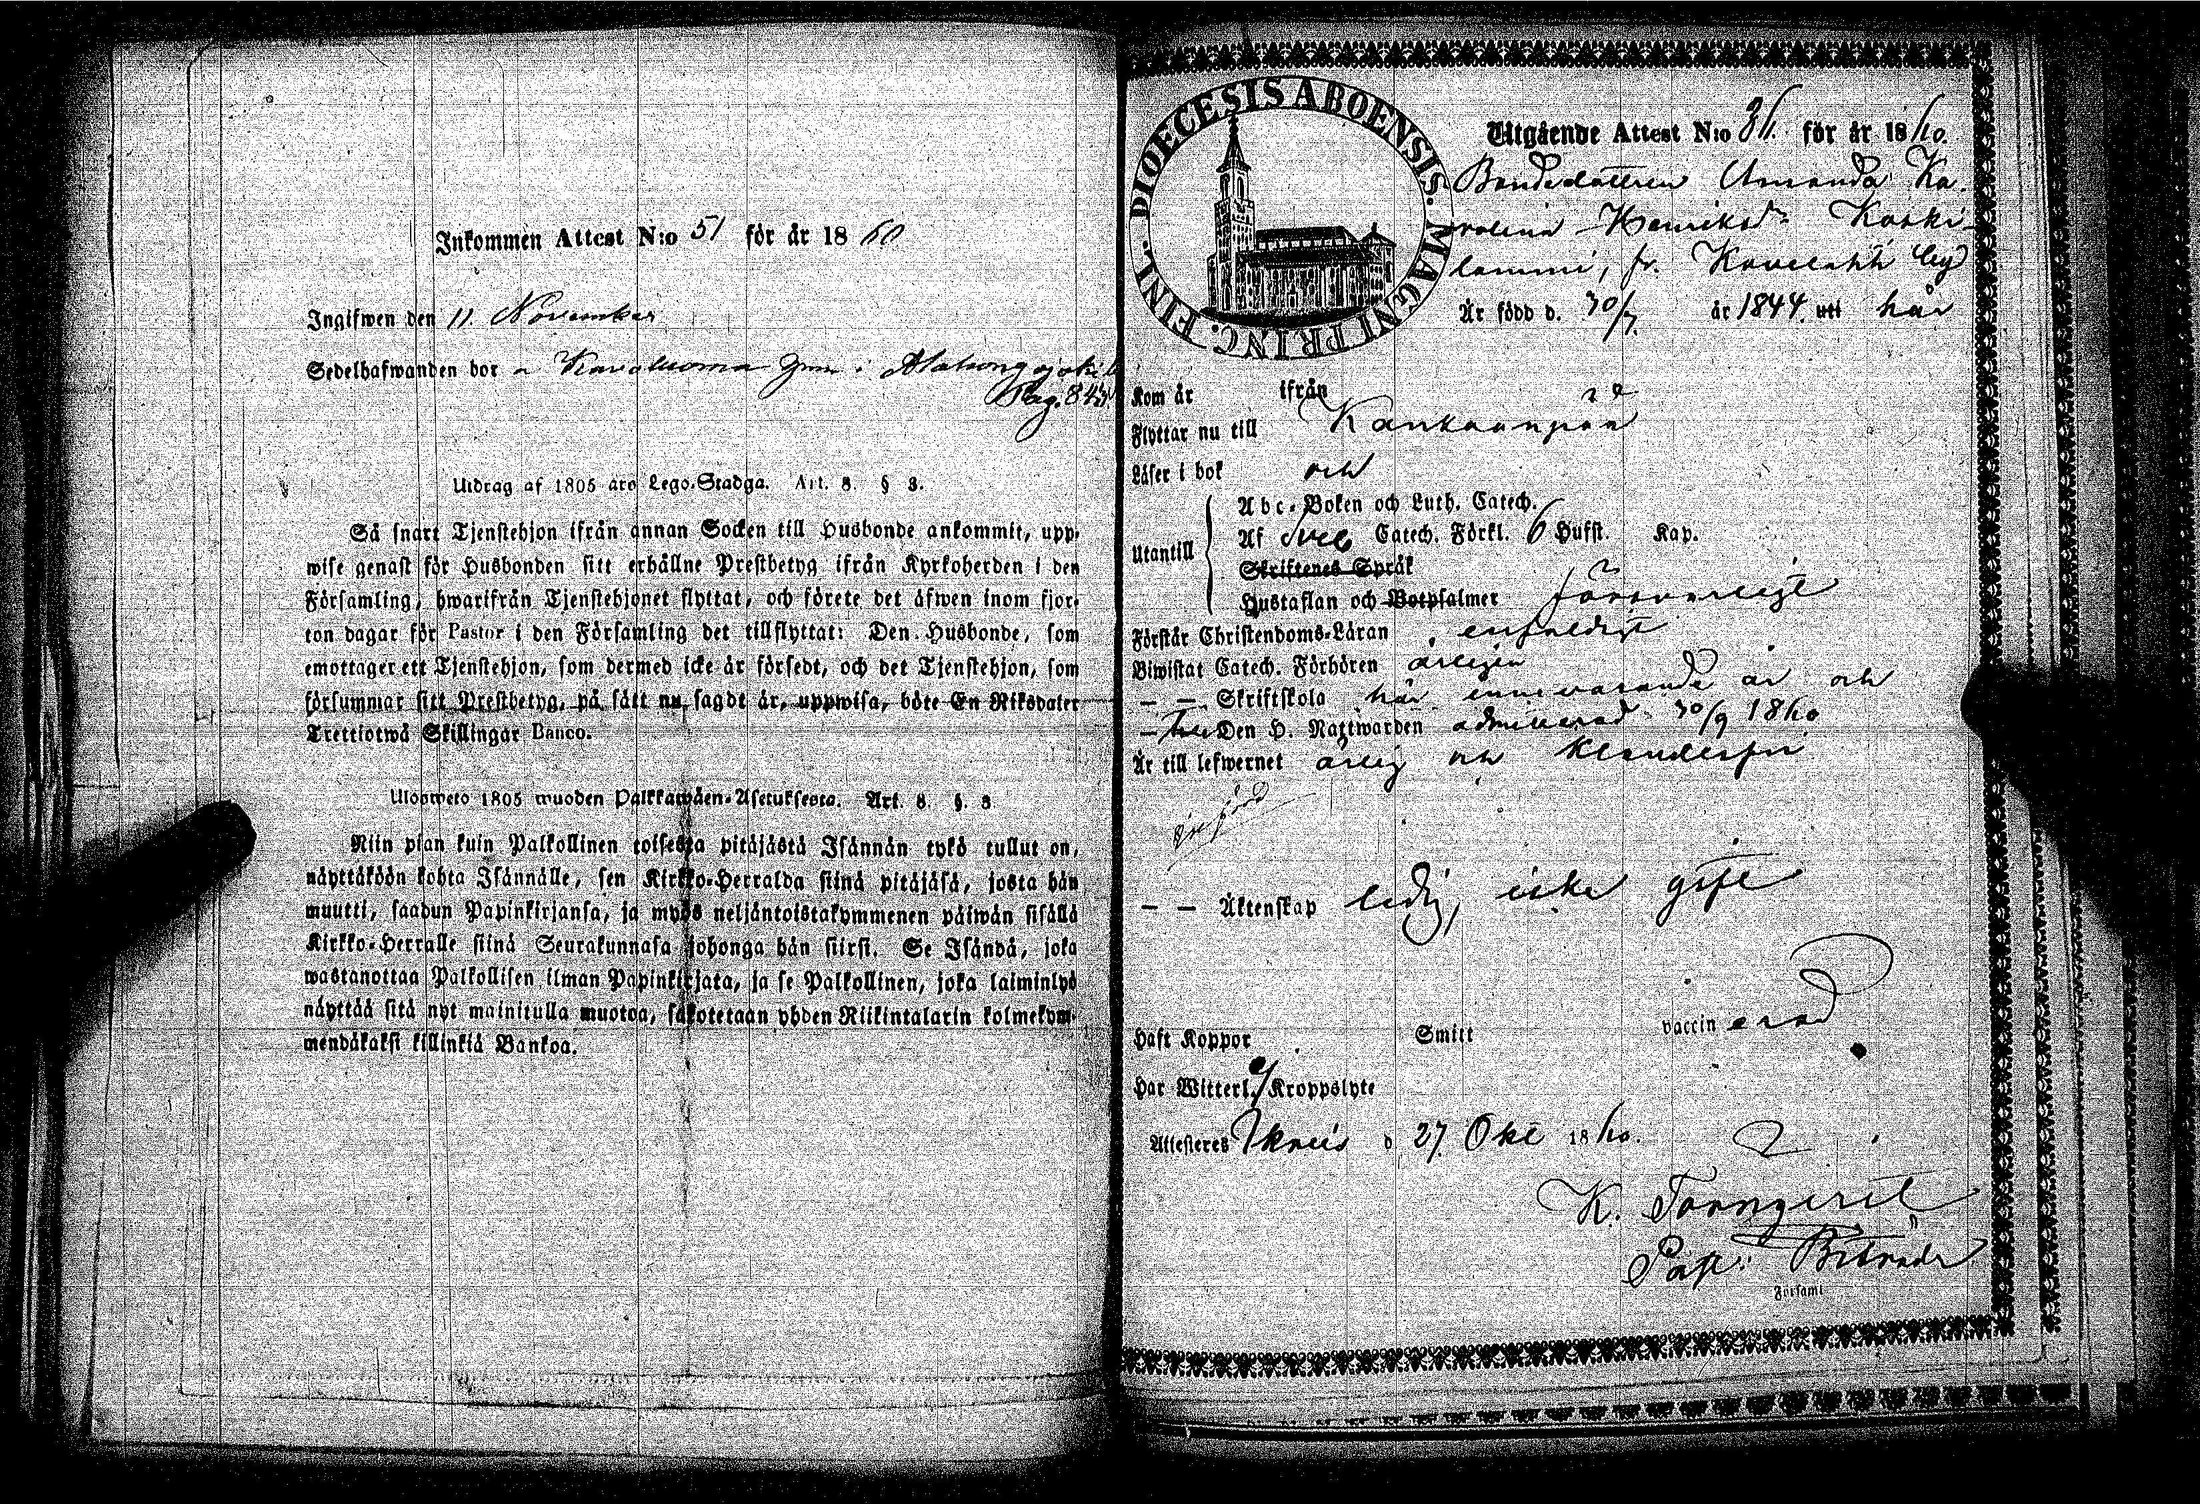 Inkommen Attest N:o 51 för år 1860
Ingifwen den 11. November
Sedelhafwanden bor a
Pag. 843
Utdrag af 1805 års Lego-Stadga. Art. 8. § 3.
Så snart Tjenstehjon ifrån annan Socken till Husbonde ankommit, upp-
wise genast för Husbonden sitt erhållne Prestbetyg ifrån Kyrkoherden i den
Församling, hwarifrån Tjenstehjonet flyttat, och förete det äfwen inom fjor-
ton dagar för Pastor i den Församling det tillflyttat: Den Husbonde, som
emottager ett Tjenstehjon, som dermed icke är försedt, och det Tjenstehjon, som
försummar sitt Prestbetyg, på sätt nu sagdt är, uppwisa, böte En Riksdaler
Trettiotwå Skillingar Banco.
Ulosweto 1805 wuoden Palkkawäen-Asetuksesta. Art. 8. §. 3
Niin pian kuin Palkollinen toisesta pitäjästä Isännän tykö tullut on,
näyttäköön kohta Isännälle, sen Kirkko-Herralda siinä pitäjäsä, josta hän
muutti, saadun Papinkirjansa, ja myös neljäntoistakymmenen päiwän sisällä
Kirkko-Herralle siinä Seurakunnasa johonga hän siirsi. Se Isändä, joka
wastanottaa Palkollisen ilman Papinkirjata, ja se Palkollinen, joka laiminlyö
näyttää sitä nyt mainitulla muotoa, sakotetaan yhden Riikintalarin kolmekym-
mendäkaksi killinkiä Bankoa.
DIOECESIS ABOENSIS. MAGNI PRINC. FINL.
Utgående Attest N:o 36. för år 1860.
Bondedottren Amanda Ka-
rolina Henriksdr Koski-
lammi, fr. Kovelahti by
Är född d. 30/7. år 1844. uti här
Kom år ifrån
Flyttar nu till Kankaanpää
Läser i bok och
Utantill
Abc-Boken och Luth. Catech.
Af Sveb Catech. Förkl. 6 Hufst. Kap.
Skriftenes Språk
Hustaflan och Botpsalmer försvarligt
Förstår Christendoms-Läran enfaldigt
Biwistat Catech. Förhören årligen
— — Skriftskola här innevarande år och
— Den H. Nattwarden admitterad 30/9 1860
Är till lefwernet ärlig och klanderfri
— — Äktenskap ledig, icke gift
Haft Koppor Smitt vaccinerad
Har Witterl. ej Kroppslyte
Attesteres Ikalis d 27. Okt 1860.
K. Forngerit
Past. Biträde
Församl